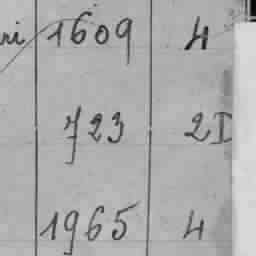 ri 1609 4
723 2D
1965 4